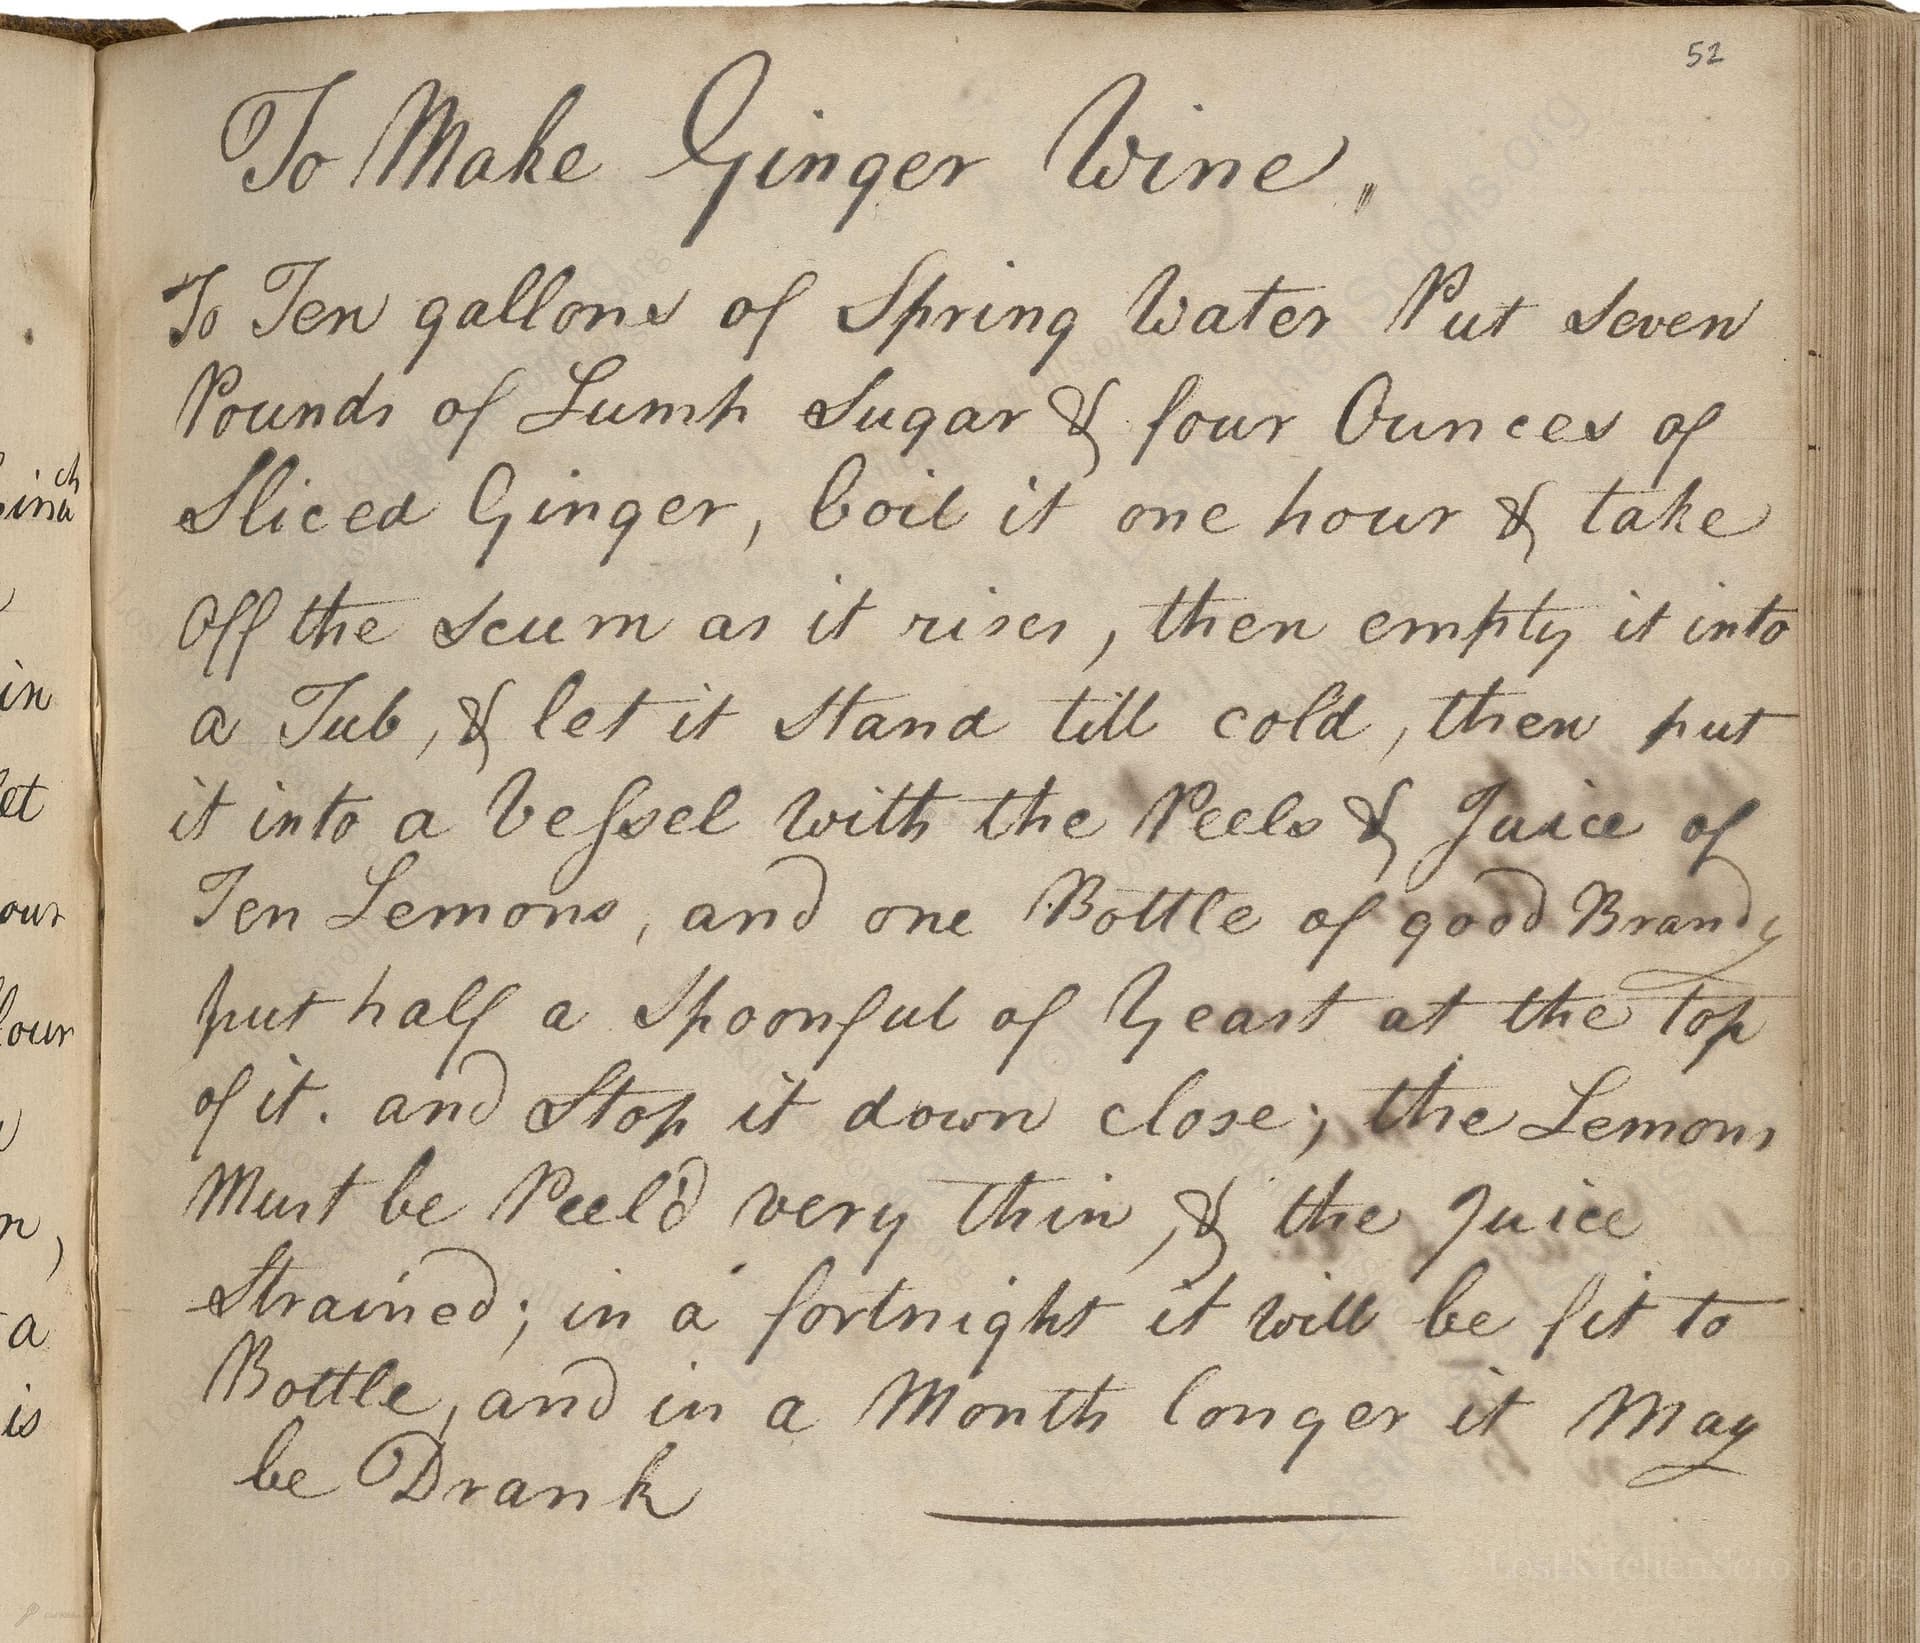 52
To Make Ginger Wine,,
To Ten gallons of Spring Water Put Seven
Pounds of Lump Sugar & four Ounces of
Sliced Ginger, boil it one hour & take
Off the scum as it rises, then empty it into
a Tub, & let it stand till cold, then put
it into a Veſsel with the Peels & Juice of
Ten Lemons, and one Bottle of good Brandy
put half a Spoonful of Yeast at the top
of it. and Stop it down close; the Lemons
Must be Peel'd very thin, & the Juice
Strained; in a fortnight it will be fit to
Bottle, and in a Month longer it May
be Drank
ch
in
let
our
flour
n,
a
is
LostKitchenScrolls.org